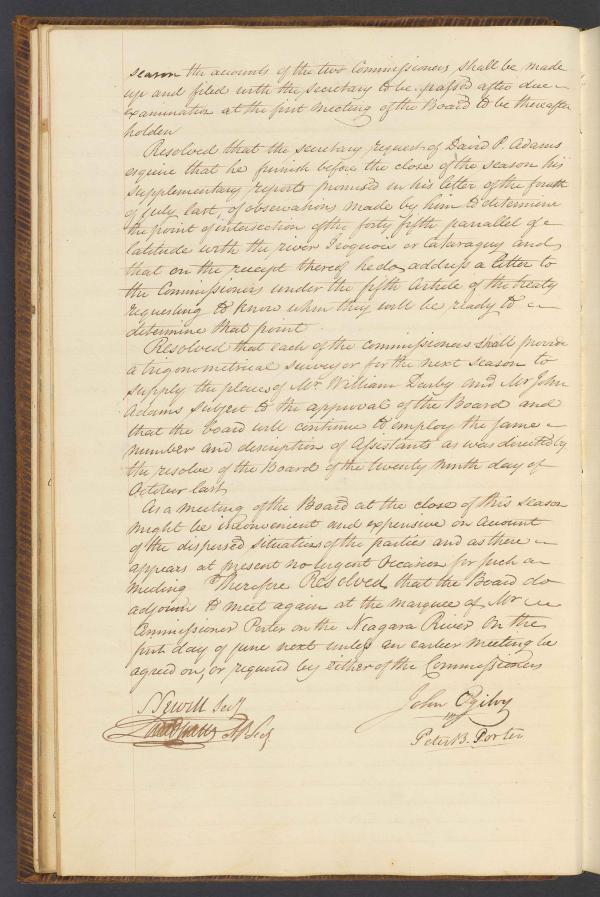 season the accounts of the two Commissioners shall be made
up and filed with the secretary to be passed after due
examination at the first meeting of the Board to be thereafter
holden
Resolved that the secretary request of David P. Adams
esquire that he furnish before the close of the season his
supplementary reports promised in his letter of the fourth
of july last, of observations made by him to determine
the point of intersection of the forty fifth parrallel of
latitude with the river Iroquois or Cataraguy and
that on the receipt thereof he do address a letter to
the Commissioners under the fifth Article of the treaty
requesting to know when they will be ready to
determine that point.
Resolved that each of the commissioners shall provide
a trigonometrical surveyor for the next season to
supply the places of Mr. William Darby and Mr John
Adams subject to the approval of the Board and
that the board will continue to employ the same
number and description of Assistants as was directed by
the resolve of the Board of the twenty ninth day of
October last
As a meeting of the Board at the close of this season
might be inconvenient and expensive on account
of the dispersed situation of the parties and as there
appears at present no urgent occasion for such a
meeting Therefore Resolved that the Board do
adjourn to meet again at the marquee of Mr
Commissioner Porter on the Niagara River on the
first day of june next unless an earlier meeting be
agreed on, or required by either of the Commissioners
S Sewell Secy
John Ogilvy
Peter B. Porter